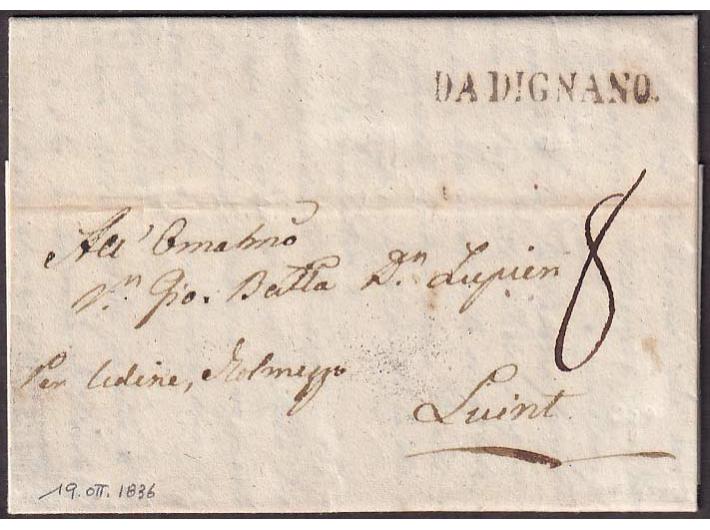 DA DIGNANO.
8
All' Ornatmo
Sn. Gio. Batta Dn. Lupieri
Per Udine, Tolmezzo
Luint
19. OTT. 1836